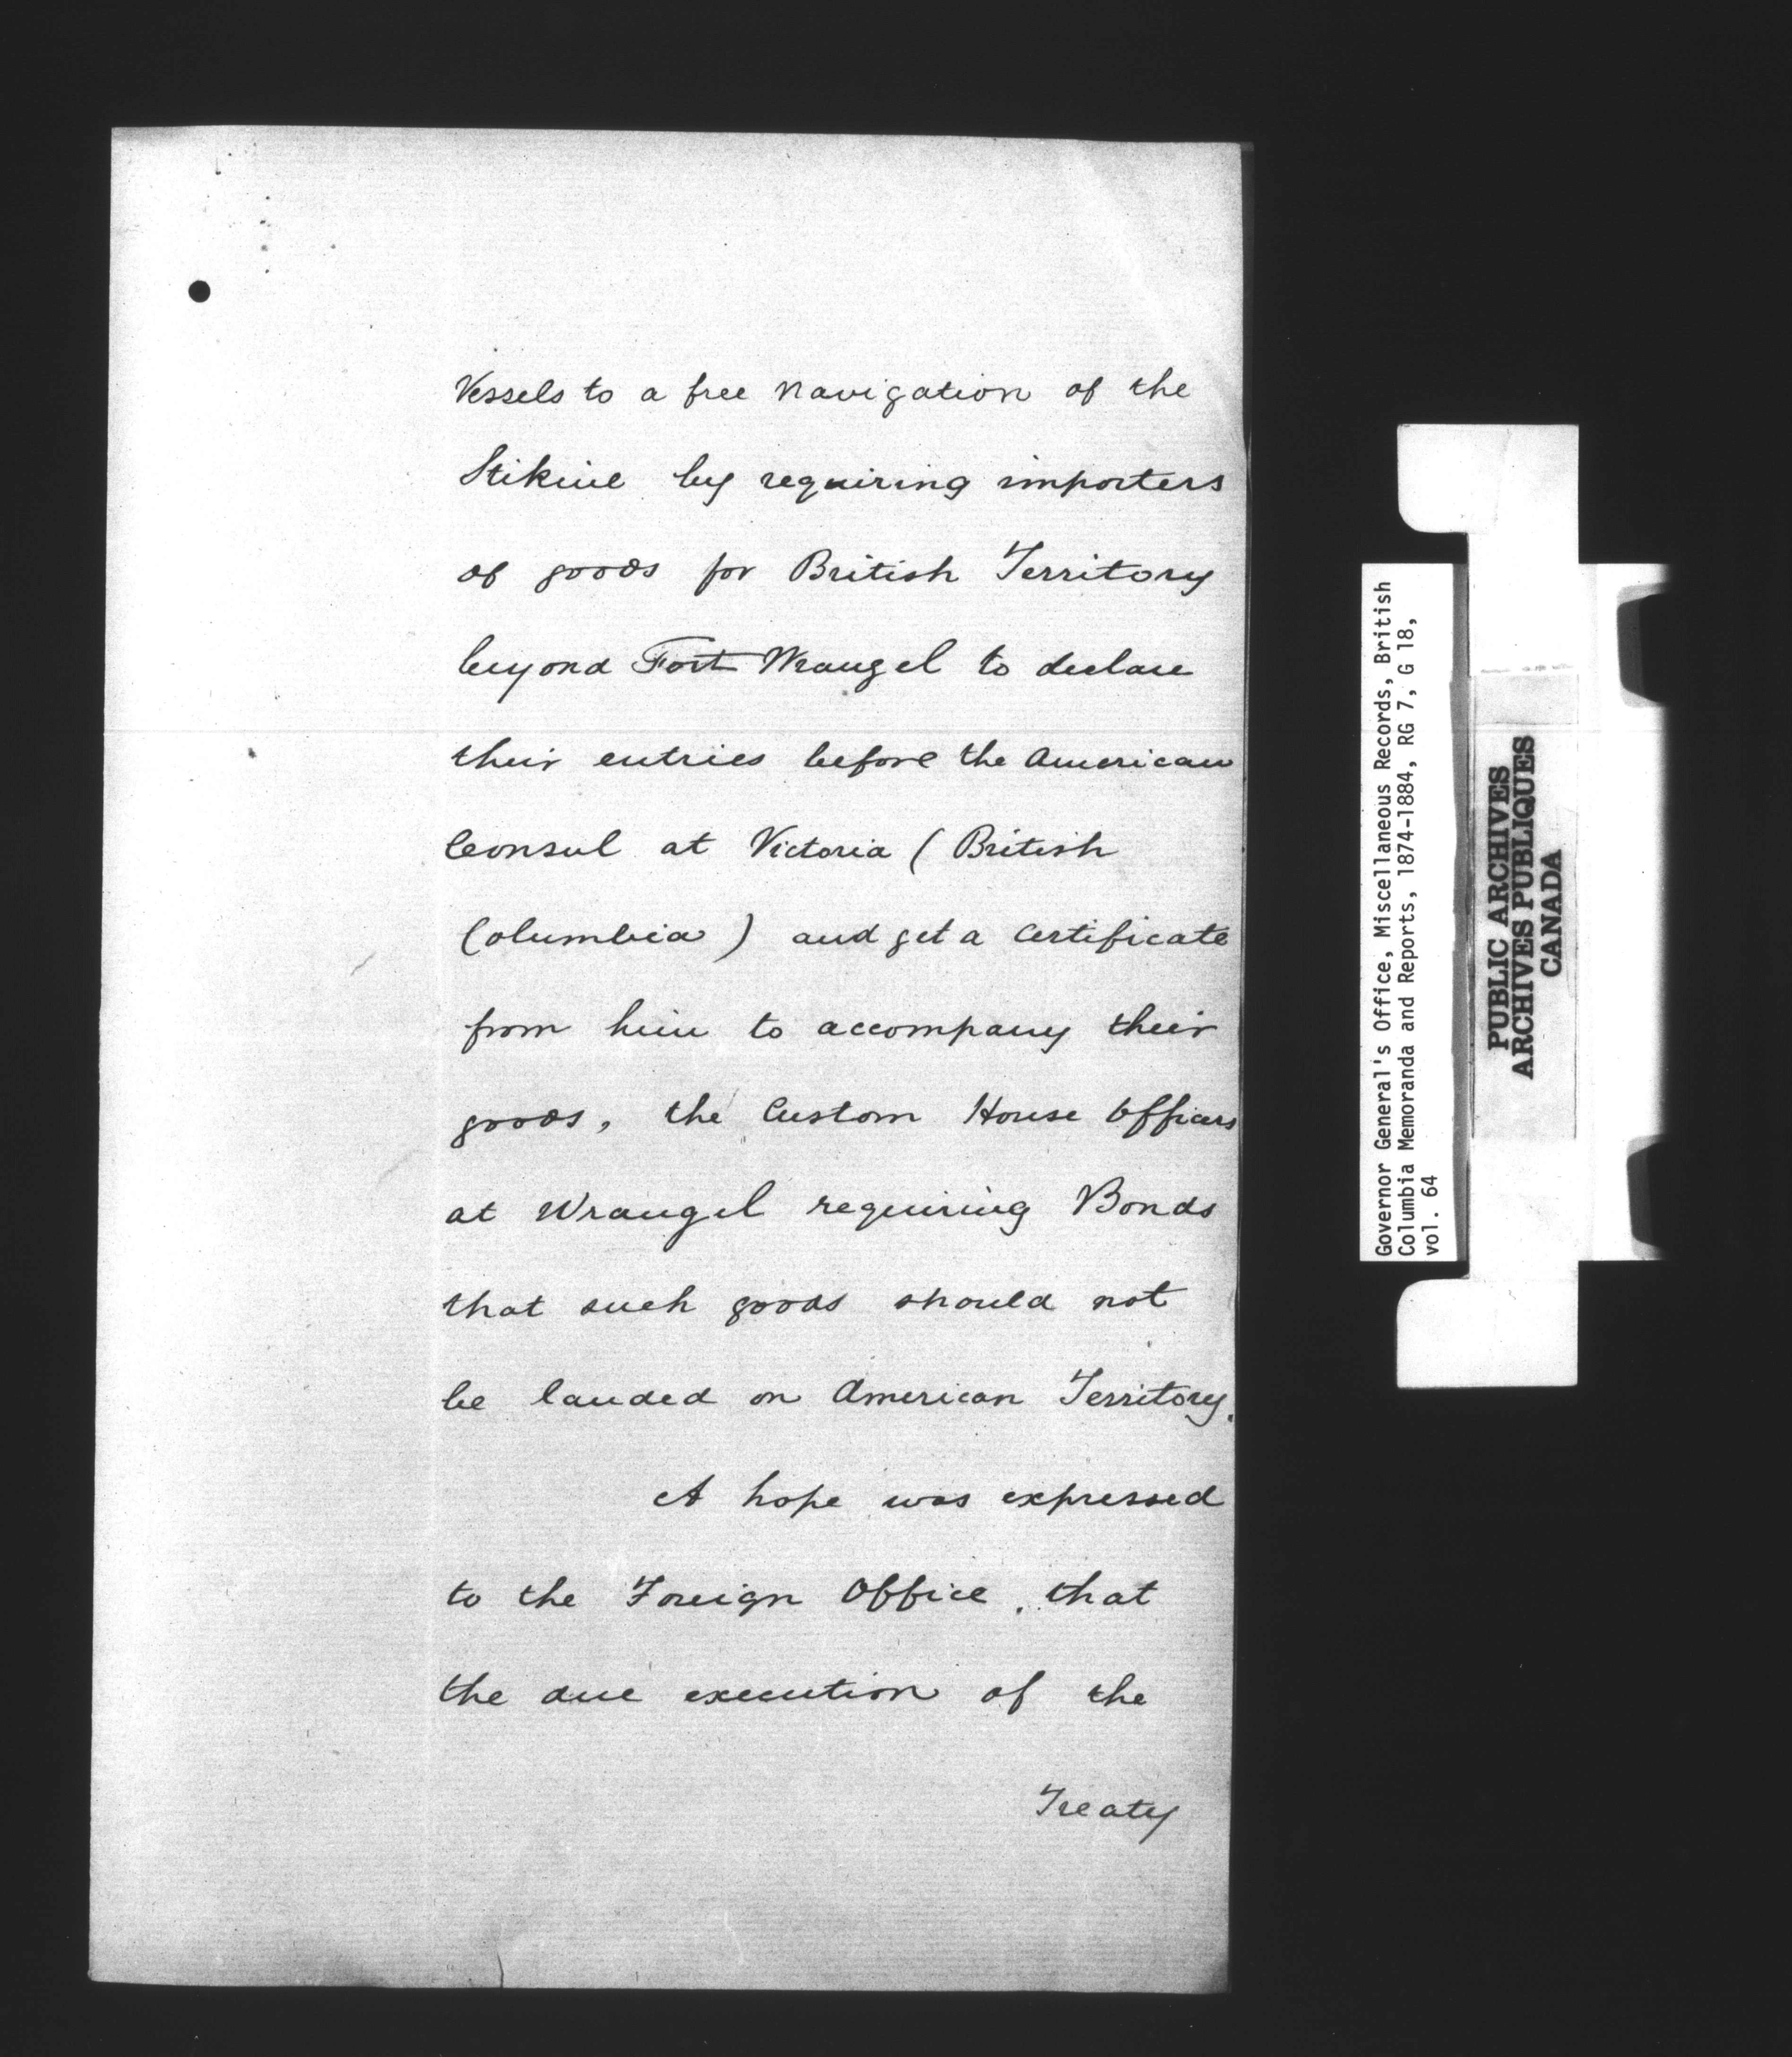 Vessels to a free navigation of the
Stikine by requiring importers
of goods for British Territory
beyond Fort Wrangel to declare
their entries before the American
Consul at Victoria (British
Columbia) and get a Certificate
from him to accompany their
goods, the Custom House Officers
at Wrangel requiring Bonds
that such goods should not
be landed on American Territory.
A hope was expressed
to the Foreign Office, that
the due execution of the
Treaty
Governor General's Office, Miscellaneous Records, British
Columbia Memoranda and Reports, 1874-1884, RG 7, G 18,
vol. 64
PUBLIC ARCHIVES
ARCHIVES PUBLIQUES
CANADA